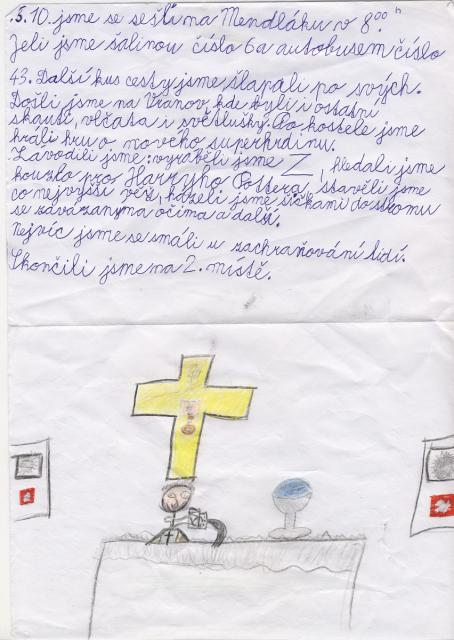 .5.10. jsme se sešli na Mendláku v 8⁰⁰ h
Jeli jsme šalinou číslo 6 a autobusem číslo
43. Další kus cesty jsme šlapali po svých.
Došli jsme na Vranov, kde byli i ostatní
skauti, vlčata i světlušky. Po kostele jsme
hráli hru o nového superhrdinu.
Závodili jsme: vyráběli jsme Z, hledali jsme
kouzlo pro Harryho Pottera, stavěli jsme
co nejvyšší věž, házeli jsme šiškami do stromu
se zavázanýma očima a další.
Nejvíc jsme se smáli u zachraňování lidí.
Skončili jsme na 2. místě.